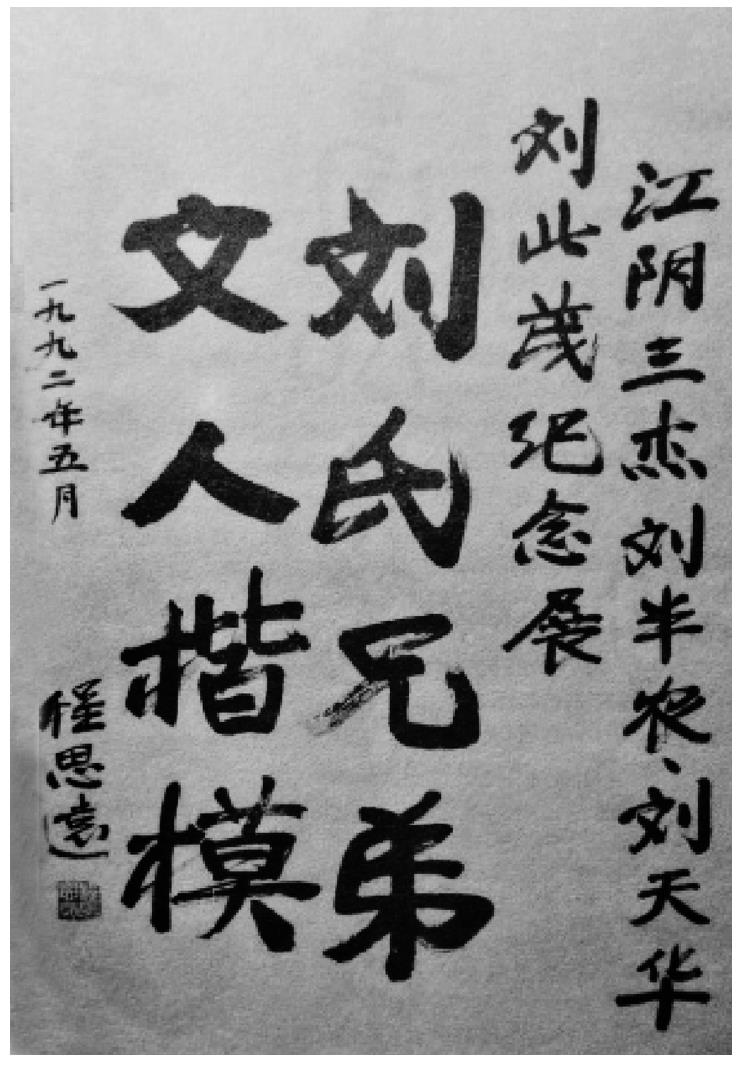 江阴三杰刘半农、刘天华
刘北茂纪念展
刘氏兄弟
文人楷模
一九九二年五月
程思远